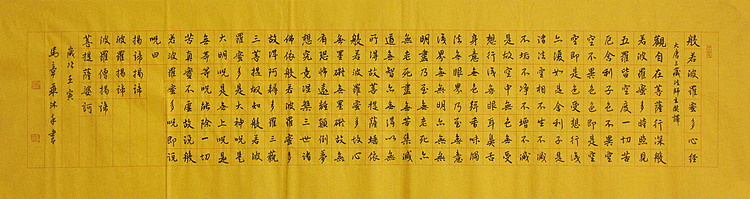 般若波羅蜜多心经
大唐三藏法師玄奘譯
觀自在菩薩行深般
若波羅蜜多時照見
五蕴皆空度一切苦
厄舍利子色不異空
空不異色色即是空
空即是色受想行識
亦復如是舍利子是
諸法空相不生不滅
不垢不净不增不減
是故空中無色無受
想行識無眼耳鼻舌
身意無色聲香味觸
法無眼界乃至無意
識界無無明亦無無
明盡乃至無老死亦
無老死盡無苦集滅
道無智亦無得以無
所得故菩提薩埵依
般若波羅蜜多故心
無罣礙無罣礙故無
有恐怖遠離顛倒夢
想究竟涅槃三世諸
佛依般若波羅蜜多
故得阿耨多羅三藐
三菩提故知般若波
羅蜜多是大神咒是
大明咒是無上咒是
無等等咒能除一切
苦真實不虛故說般
若波羅蜜多咒即說
咒曰
揭諦揭諦
波羅揭諦
波羅僧揭諦
菩提薩婆訶
歲次壬寅
沐手書